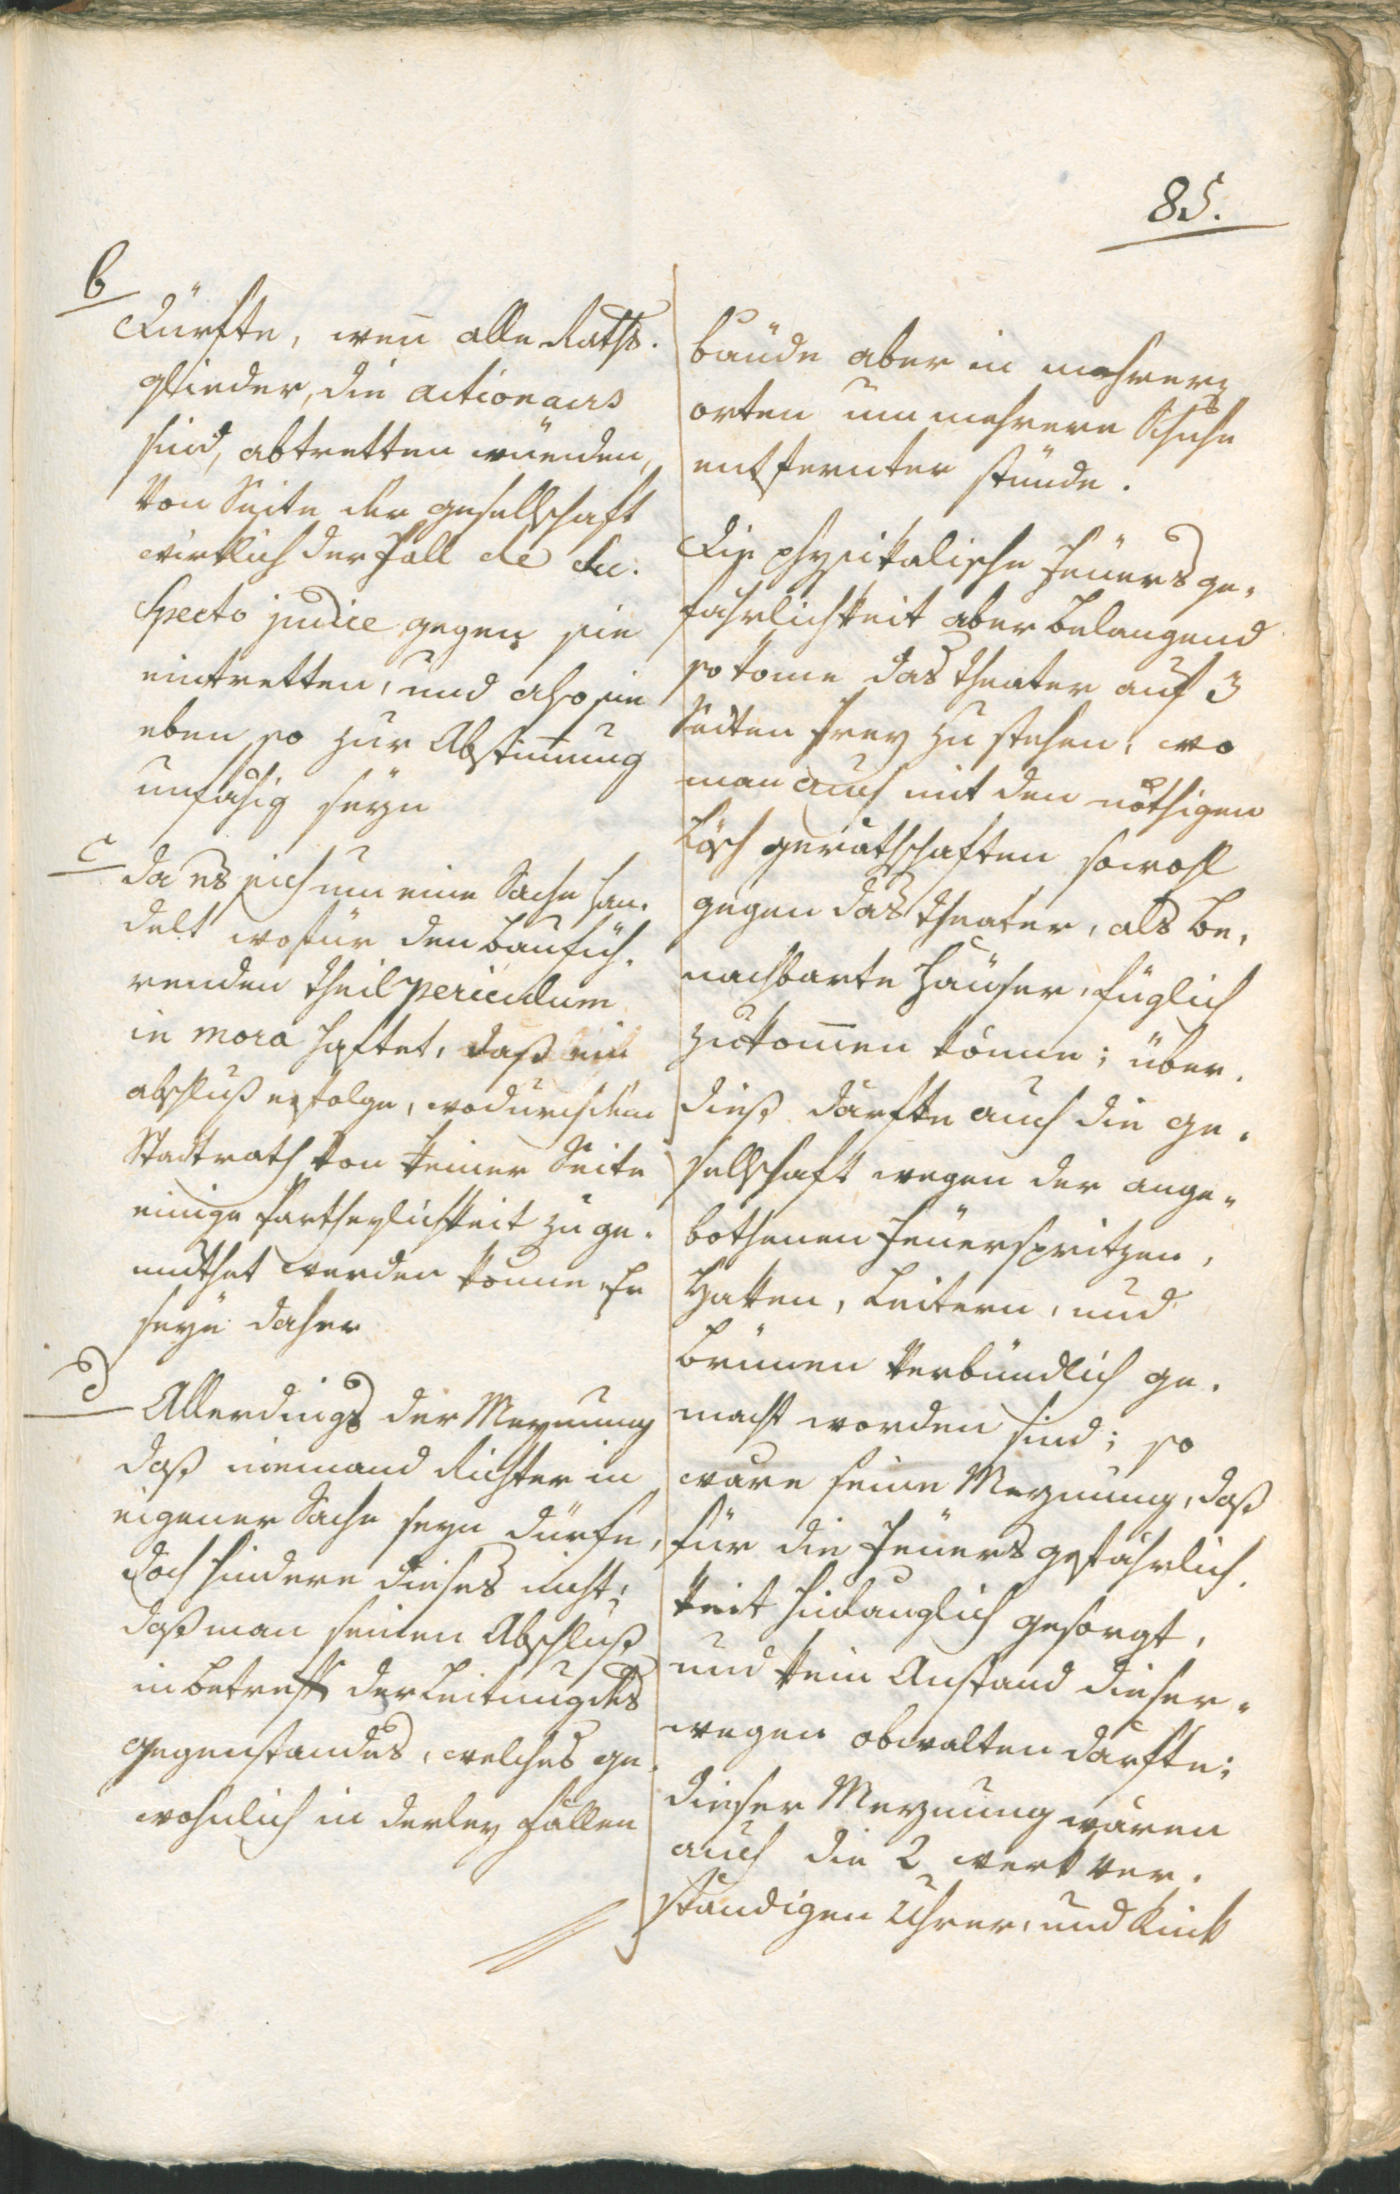 85.
b
Dürfte, wen̄ alle Raths-
glieder, die actionairs
sind, abtretten würden,
von Seite der gesellschaft
wirklich der Fall de su-
specto judice gegen sie
eintretten, und also sie
eben so zur Abstim̄ung
unfähig seyn
c
da es sich um eine Sache han-
delt wofür den baufüh-
renden theil periculum
in mora haftet, daß ein
abschluß erfolge, wodurch dem
Stadtrath von keiner Seite
einige Partheylichkeit zu ge-
muthet werden könne. Er
seye daher
d
Allerdings der Meynung
daß niemand Richter in
eigener Sache seyn dürfe,
doch hindere dieses nicht,
daß man seinen Abschluß
in betreff der Leitung des
gegenstandes, welches ge-
wohnlich in derley fällen
baüde aber in mehrern
orten um mehrere Schuhe
entfernter stünde.
Die physikalische Feüersge-
fährlichkeit aber belangend
so kome das theater auf 3
Seiten frey zu stehen, wo
man auch mit den nöthigen
Lösch geräthschaften sowohl
gegen das theater, als be-
nachbarte Häuser, füglich
zukom̄en könne; über-
dieß darfte auch die ge-
sellschaft wegen der ange-
bothenen Feüerspritzen,
Haken, Leitern, und
Brünen verbündlich ge-
macht worden sind; so
ware seine Meynung, daß
für die Feüersgefährlich-
keit hinlänglich gesorgt,
und kein Anstand dieser-
wegen obwalten darfte;
dieser Meynung wären
auch die 2 werkver-
ständigen Uhrer, und Kink